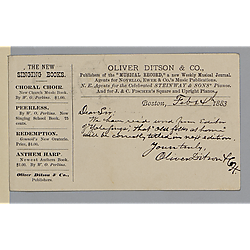 THE NEW
SINGING BOOKS.
CHORAL CHOIR.
New Church Music Book.
By W. O. Perkins. $1.00.
PEERLESS.
By W. O. Perkins. New
Singing School Book, 75
cents.
REDEMPTION.
Gounod's New Oratorio.
Price, $1.00.
ANTHEM HARP.
Newest Anthem Book
By W. O. Perkins. $1.25.
Oliver Ditson & Co.,
Publishers.
OLIVER DITSON & CO.,
Publishers of the "MUSICAL RECORD," a new Weekly Musical Journal.
Agents for NOVELLO, EWER & CO.'s Music Publications.
N. E. Agents for the Celebrated STEINWAY & SONS' Pianos.
And for J. & C. FISCHER'S Square and Upright Pianos.
Boston, Feby 1883
Dear Sir,
We have rec'd word from Editor
of that "Old folks at home"
will be correctly titled in new edition.
Yours truly,
Oliver Ditson & Co.